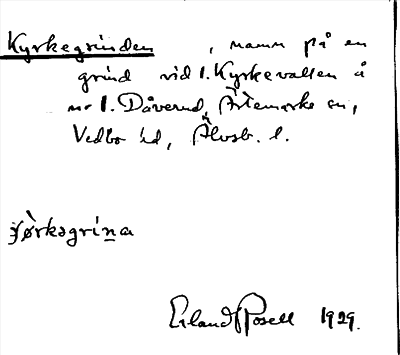 Kyrkegrinden, namn på en
grind vid 1. Kyrkevallen å
nr 1. Dåverud, Ärtemarks sn,
Vedbo hd, Älvsb. l.
Erland Rosell 1929.